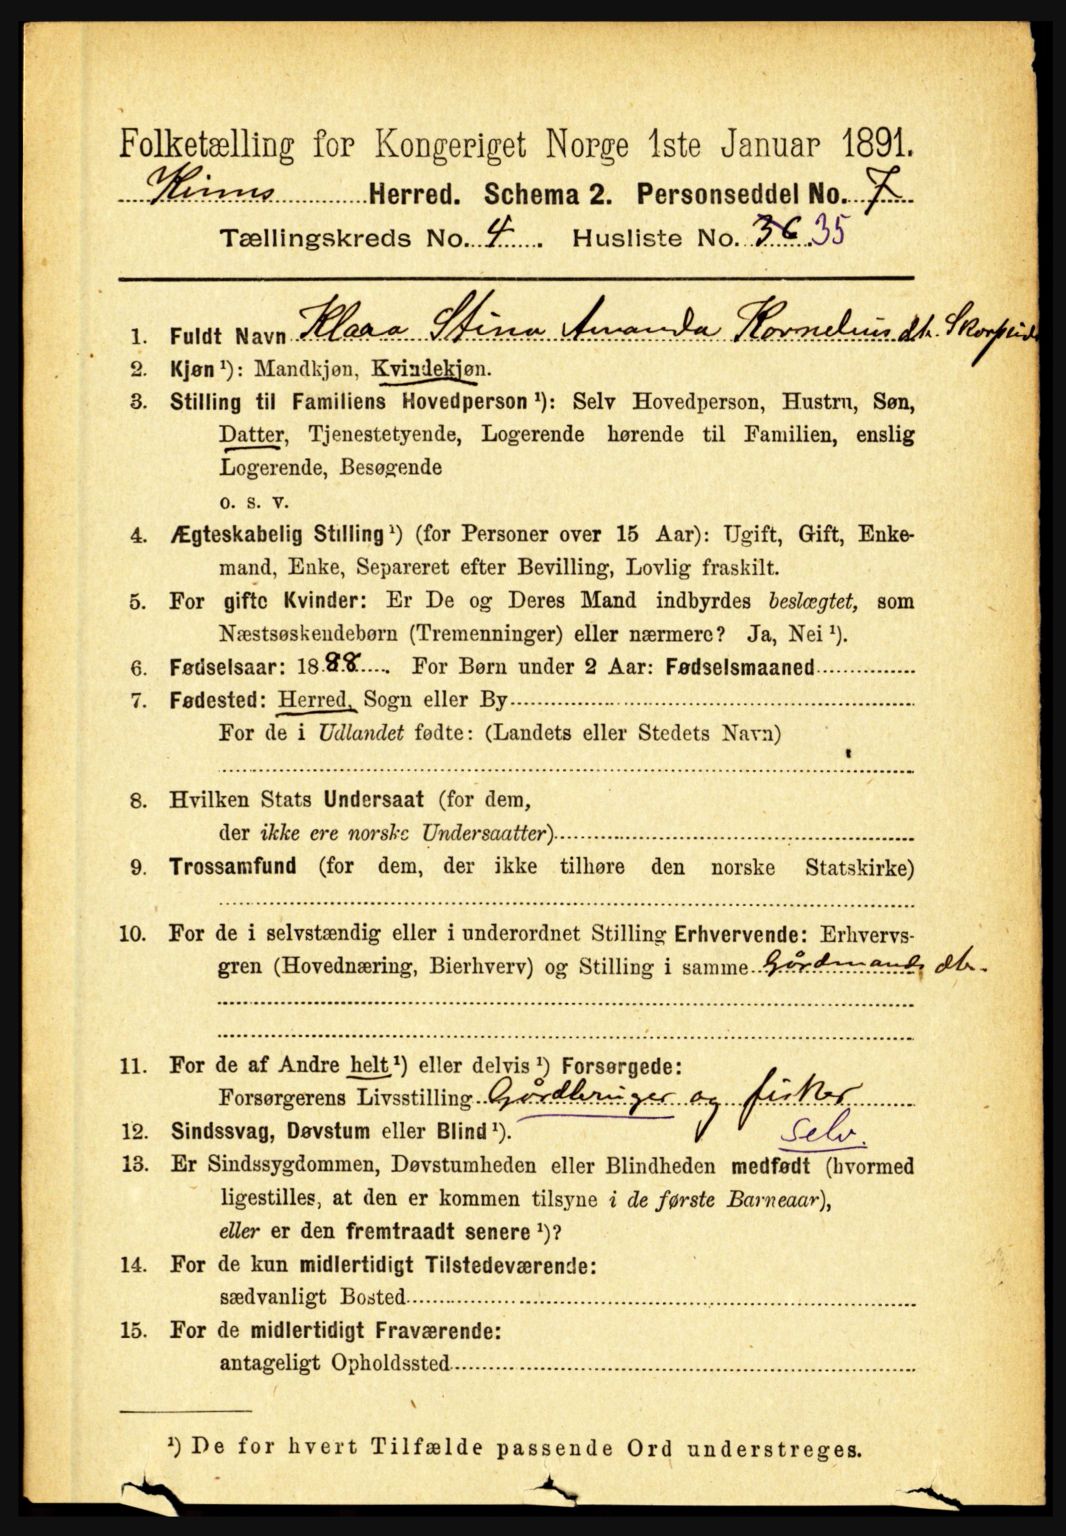 Folketælling for Kongeriget Norge 1ste Januar 1891.
Kinns Herred. Schema 2. Personseddel No. 7
Tællingskreds No. 4. Husliste No. 36 35
1. Fuldt Navn Klara Stina Amanda Kornelius dtr.
2. Kjøn ¹): Mandkjøn, Kvindekjøn.
3. Stilling til Familiens Hovedperson ¹): Selv Hovedperson, Hustru, Søn,
Datter, Tjenestetyende, Logerende hørende til Familien, enslig
Logerende, Besøgende
o. s. v.
4. Ægteskabelig Stilling ¹) (for Personer over 15 Aar): Ugift, Gift, Enke-
mand, Enke, Separeret efter Bevilling, Lovlig fraskilt.
5. For gifte Kvinder: Er De og Deres Mand indbyrdes beslægtet, som
Næstsøskendebørn (Tremenninger) eller nærmere? Ja, Nei ¹).
6. Fødselsaar: 1888. For Børn under 2 Aar: Fødselsmaaned
7. Fødested: Herred, Sogn eller By
For de i Udlandet fødte: (Landets eller Stedets Navn)
8. Hvilken Stats Undersaat (for dem,
der ikke ere norske Undersaatter)
9. Trossamfund (for dem, der ikke tilhøre den norske Statskirke)
10. For de i selvstændig eller i underordnet Stilling Erhvervende: Erhvervs-
gren (Hovednæring, Bierhverv) og Stilling i samme Gårdmands dtr.
11. For de af Andre helt ¹) eller delvis ¹) Forsørgede:
Forsørgerens Livsstilling Gårdbruger og fisker
12. Sindssvag, Døvstum eller Blind ¹). Selv.
13. Er Sindssygdommen, Døvstumheden eller Blindheden medfødt (hvormed
ligestilles, at den er kommen tilsyne i de første Barneaar),
eller er den fremtraadt senere ¹)?
14. For de kun midlertidigt Tilstedeværende:
sædvanligt Bosted
15. For de midlertidigt Fraværende:
antageligt Opholdssted
¹) De for hvert Tilfælde passende Ord understreges.